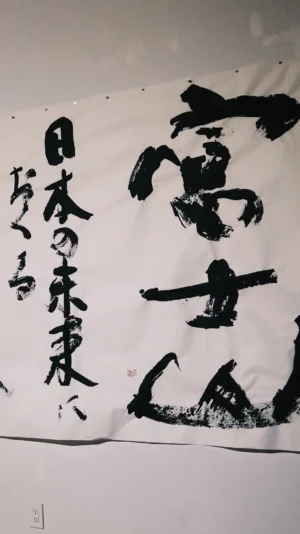 富士山
日本の未来に
おくる